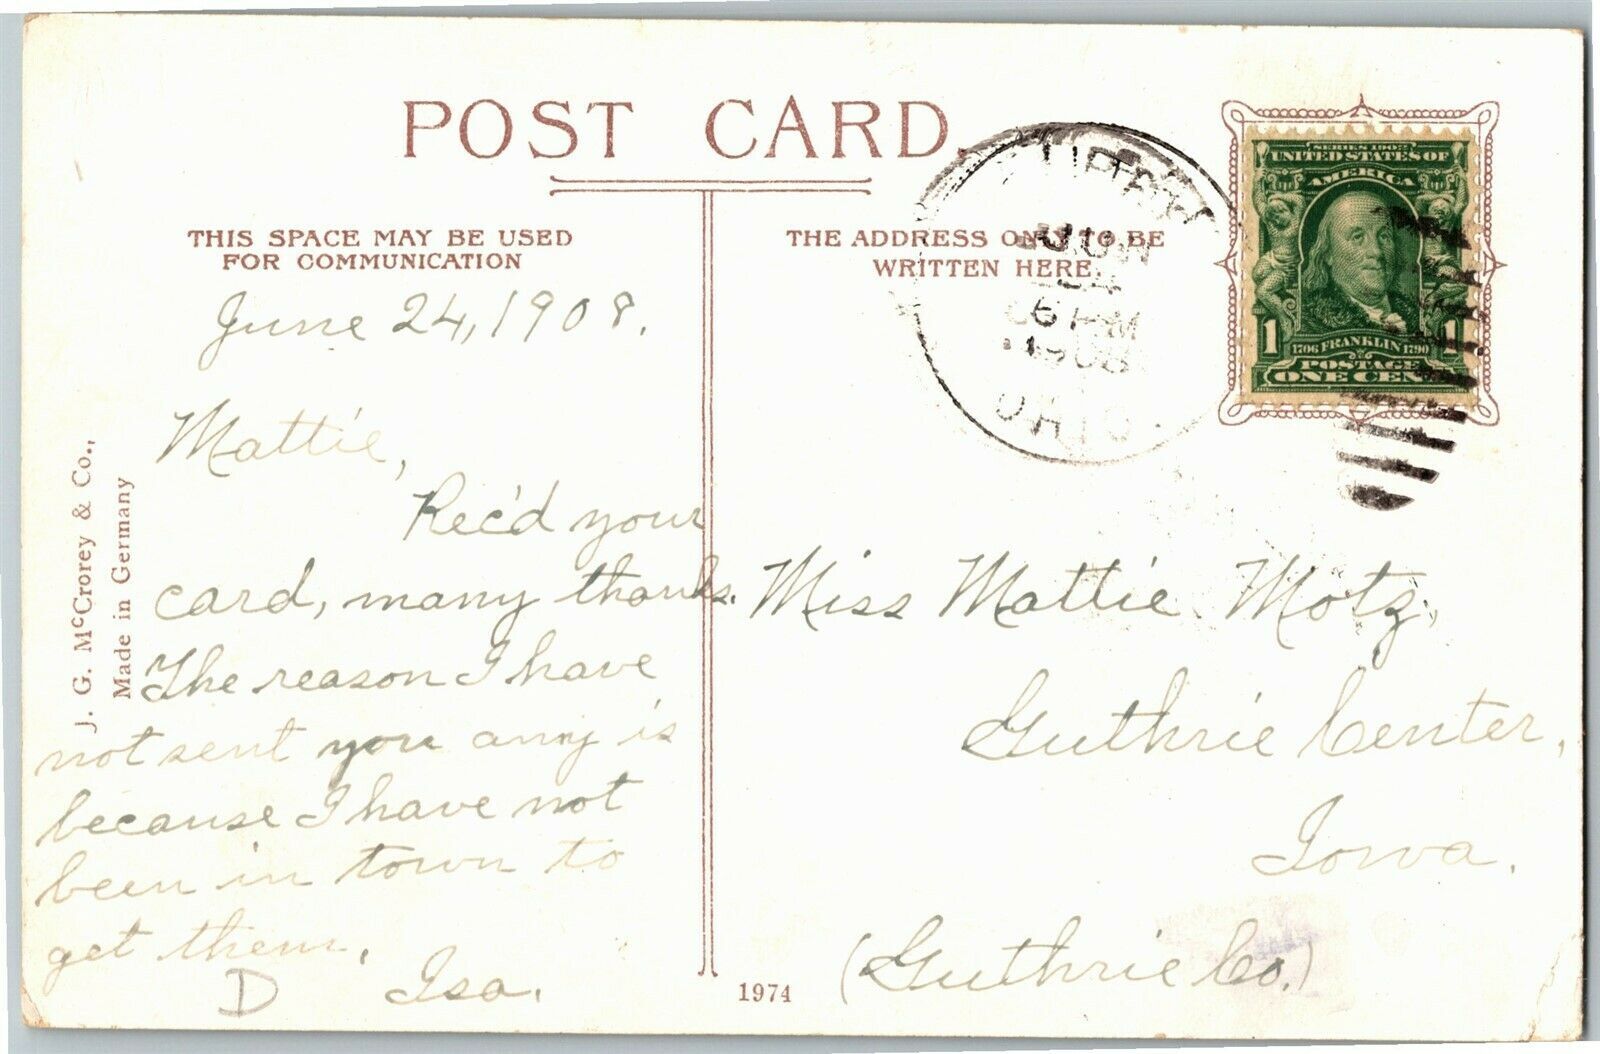 POST CARD
THIS SPACE MAY BE USED
FOR COMMUNICATION
THE ADDRESS ONLY TO BE
WRITTEN HERE.
J. G. McCrorey & Co.,
Made in Germany
June 24, 1908.
Mattie,
Rec'd your
card, many thanks.
The reason I have
not sent you any is
because I have not
been in town to
get them.
D
Isa.
JUN
24
6 PM
1908
OHIO.
SERIES 1902
UNITED STATES OF
AMERICA
1 1
1706 FRANKLIN 1790
POSTAGE
ONE CENT
Miss Mattie Motz,
Guthrie Center,
Iowa.
(Guthrie Co.)
1974